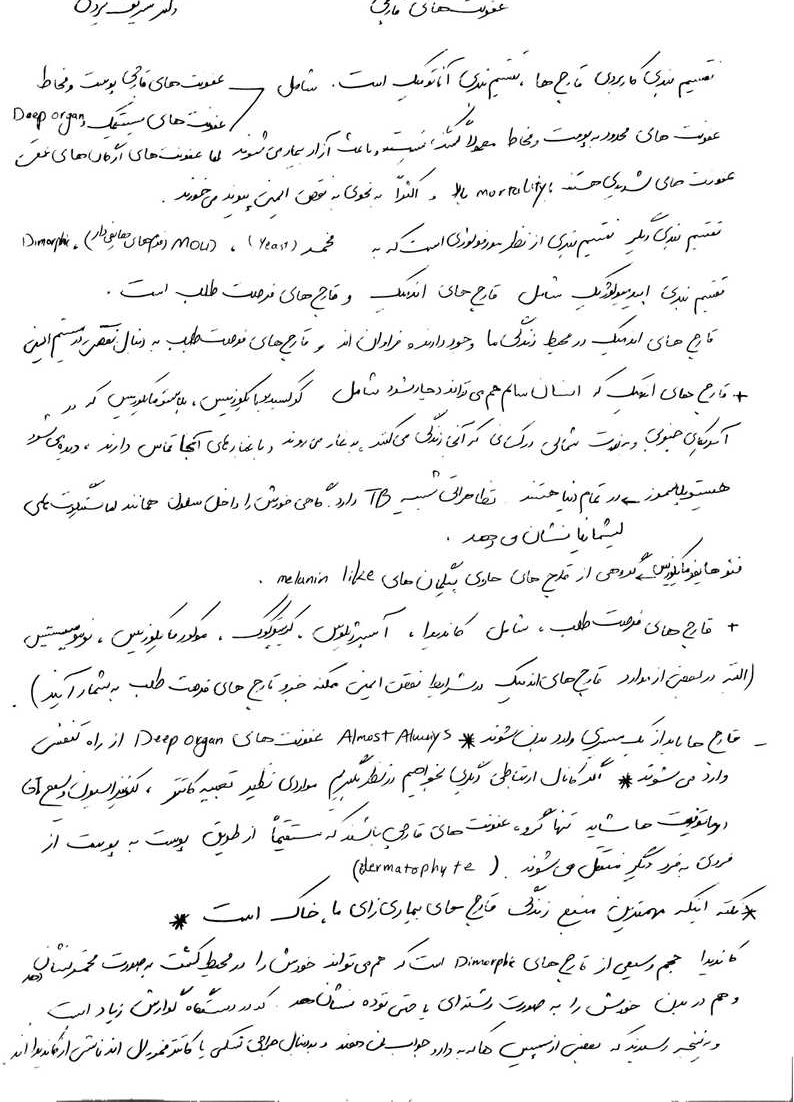 عفونت های قارچی
دکتر شریف یزدی
تقسیم بندی کاربردی قارچ ها، تقسیم بندی آناتومیک است. شامل عفونت های قارچی پوست و مخاط
عفونت های سیستمیک و Deep organ
عفونت های محدود به پوست و مخاط معمولاً کشنده نیستند و باعث آزار بیمار می شوند اما عفونت های ارگان های عمقی
عفونت های شدیدی هستند با mortality بالا و اکثراً به نحوی به نقص ایمنی پیوند می خورند.
تقسیم بندی دیگر تقسیم بندی از نظر مورفولوژی است که به مخمر (Yeast)، Mold (فرم های هایفی دار)، Dimorphic
تقسیم بندی اپیدمیولوژیک شامل قارچ های اندمیک و قارچ های فرصت طلب است.
قارچ های اندمیک در محیط زندگی ما وجود دارند و فراوان اند و قارچ های فرصت طلب به دنبال نقص در سیستم ایمنی
+ قارچ های اندمیک که انسان سالم هم می تواند دچار شود شامل کوکسیدیوایکوزیس، بلاستومایکوزیس که در
آمریکای جنوبی و بندرت شمالی در کسانی که آنجا زندگی می کنند، به غار می روند و با غارهای آنجا تماس دارند، دیده می شود
هیستوپلاسموز ← در تمام دنیا هستند. تظاهراتی شبیه TB دارد. گاهی خودش را داخل سلول همانند اماستیگوت های
لیشمانیا نشان می دهد.
فئوهایفومایکوزیس ← گروهی از قارچ های حاوی پیگمان های melanin like.
+ قارچ های فرصت طلب، شامل کاندیدا، آسپرژیلوس، کریپتوکوک، موکورمایکوزیس، نوموسیستیس
(البته در بعضی از موارد قارچ های اندمیک در شرایط نقص ایمنی ممکنه جزو قارچ های فرصت طلب به شمار آیند).
- قارچ ها باید از یک مسیری وارد بدن شوند * Almost Always عفونت های Deep organ از راه تنفسی
وارد می شوند * اگر کانال ارتباطی دیگری بخواهیم در نظر بگیریم مواردی نظیر تعبیه کاتتر، کلونیزاسیون وسیع GI
درماتوفیت ها شاید تنها گروه عفونت های قارچی باشند که مستقیماً از طریق پوست به پوست از
فردی به فرد دیگر منتقل می شوند. (dermatophyte)
* نکته اینکه مهمترین منبع زندگی قارچ های بیماری زای ما، خاک است *
کاندیدا حجم وسیعی از قارچ های Dimorphic است که هم می تواند خودش را در محیط کشت به صورت مخمر نشان دهد
و هم در بدن خودش را به صورت رشته ای یا حتی توده نشان دهد. که در دستگاه گوارش زیاد است
و به نتیجه رسیدند که بعضی از سپسیس ها که به دارو جواب نمی دهند و بدنبال جراحی شکمی یا کاتتر فمورال اند ناشی از کاندیدا اند